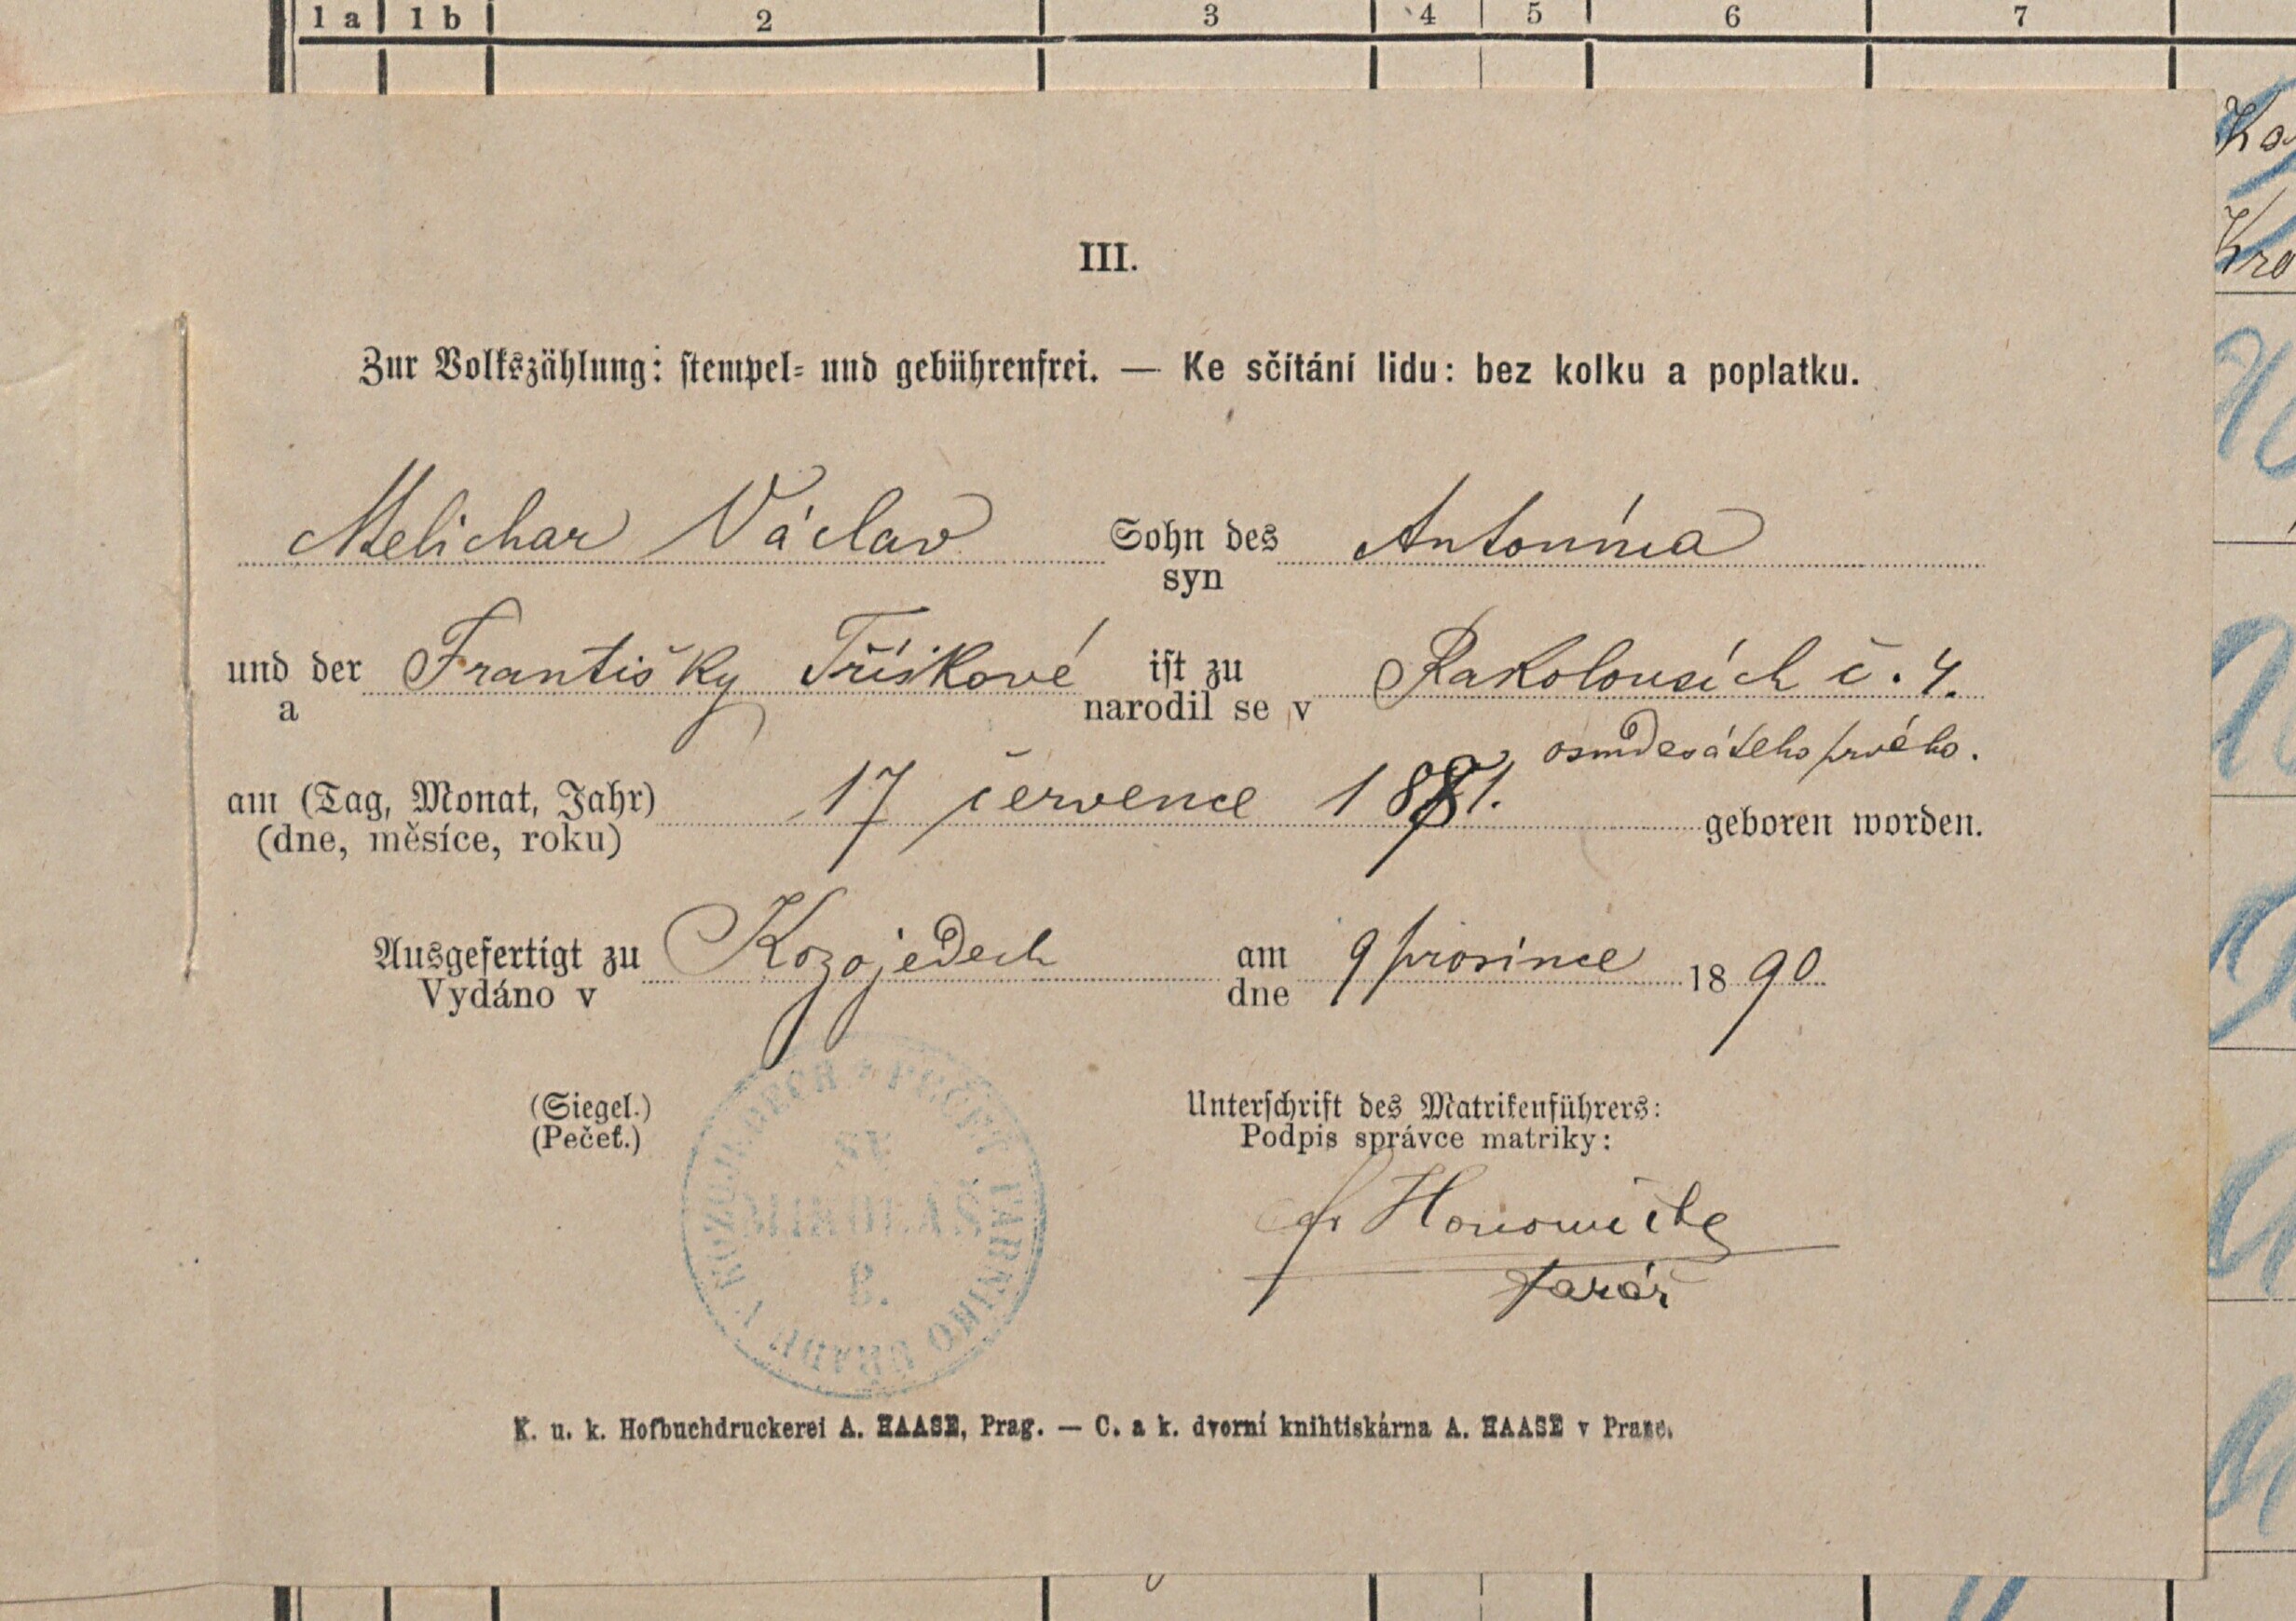 1 a 1 b 2 3 4 5 6 7
III.
Zur Volkszählung: stempel- und gebührenfrei. — Ke sčítání lidu: bez kolku a poplatku.
Melichar Václav Sohn des Antonína
syn
und der Františky Tříškové ist zu Rakolousích č. 4.
a narodil se v
osmdesátého prvého.
am (Tag, Monat, Jahr) 17 července 1881. geboren worden.
(dne, měsíce, roku)
Ausgefertigt zu Kozojedech am 9 prosince 1890
Vydáno v dne
(Siegel.) Unterschrift des Matrikenführers:
(Pečeť.) Podpis správce matriky:
PEČEŤ FARNÍHO ÚŘADU V KOZOJEDECH
SV.
MIKOLÁŠ
B.
farář
K. u. k. Hofbuchdruckerei A. HAASE, Prag. — C. a k. dvorní knihtiskárna A. HAASE v Praze.